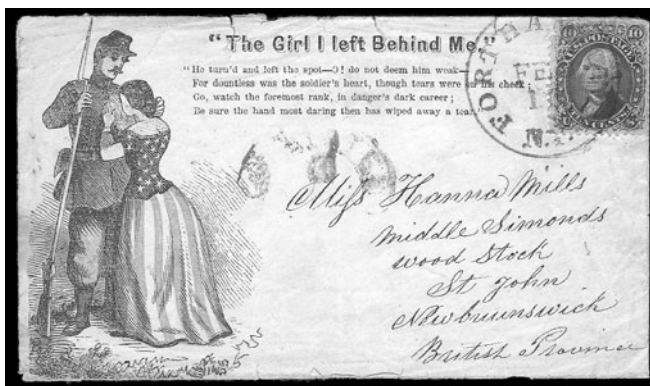 "The Girl I left Behind Me."
"He turn'd and left the spot—O! do not deem him weak—
For dountless was the soldier's heart, though tears were on his cheek;
Go, watch the foremost rank, in danger's dark career;
Be sure the hand most daring then has wiped away a tear."
FORT HA
FE
N.Y.
10 U.S. POSTAGE 10
TEN CENTS
Miss Hanna Mills
Middle Simonds
wood Stock
St John
Newbrunswick
British Province